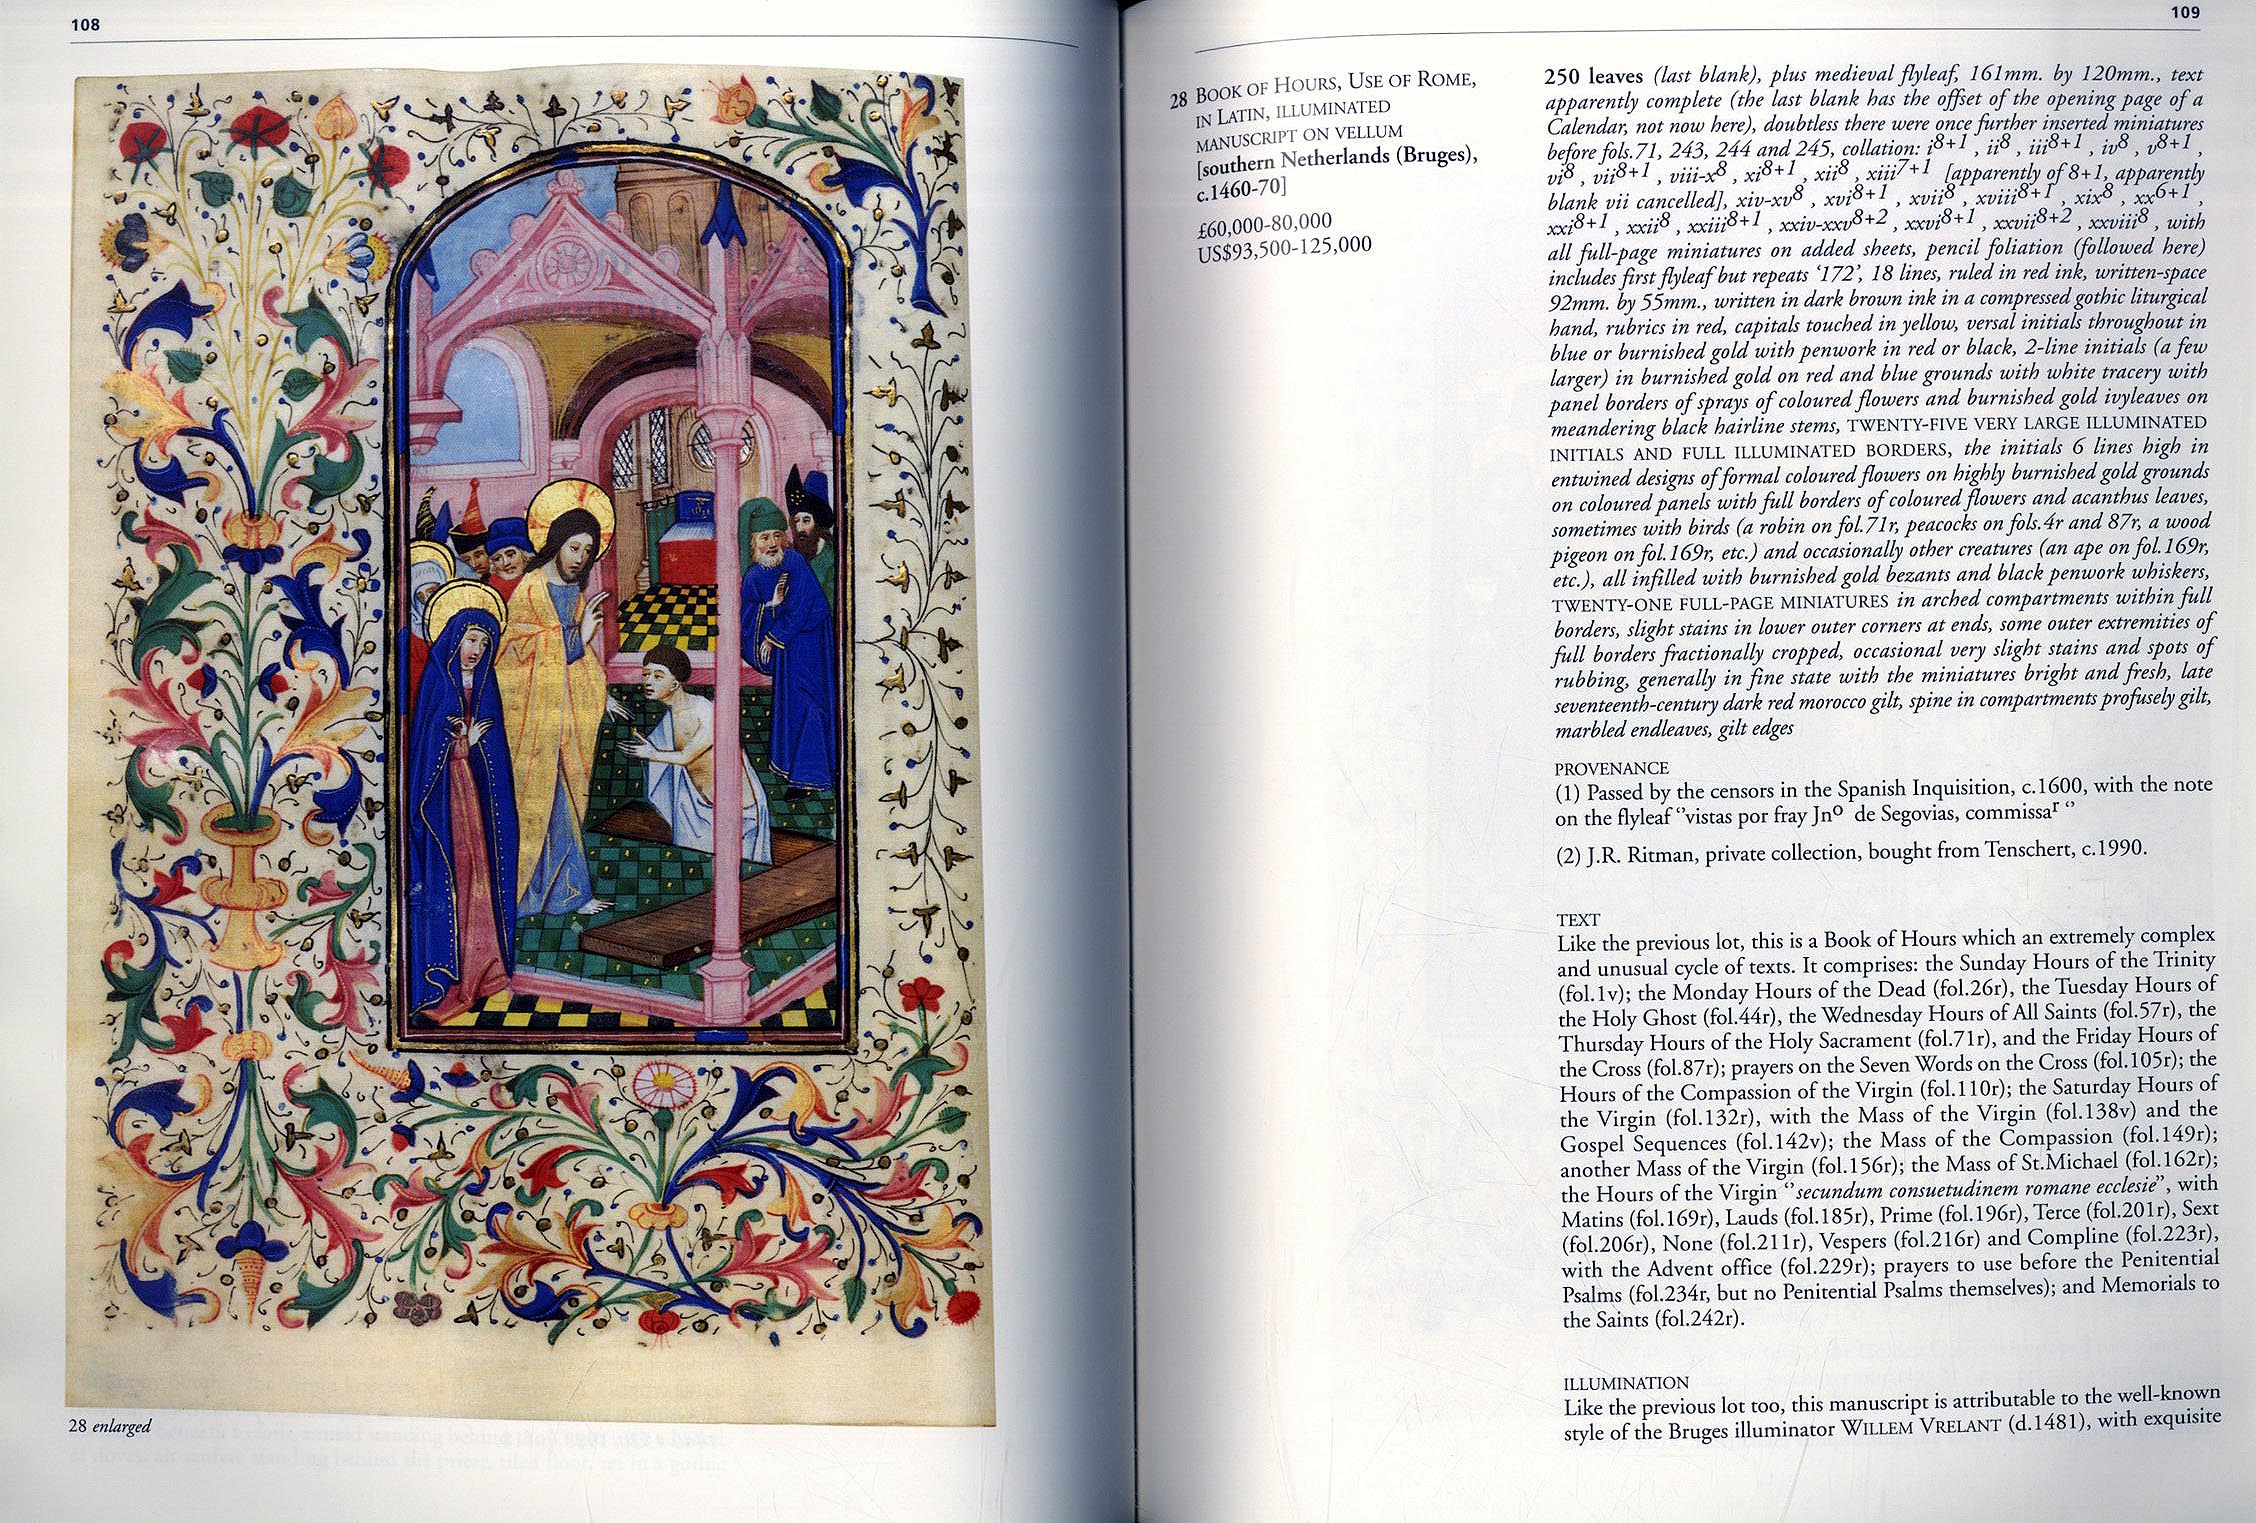 108
28 enlarged
109
28 BOOK OF HOURS, USE OF ROME,
IN LATIN, ILLUMINATED
MANUSCRIPT ON VELLUM
[southern Netherlands (Bruges),
c.1460-70]
£60,000-80,000
US$93,500-125,000
250 leaves (last blank), plus medieval flyleaf, 161mm. by 120mm., text
apparently complete (the last blank has the offset of the opening page of a
Calendar, not now here), doubtless there were once further inserted miniatures
before fols.71, 243, 244 and 245, collation: i8+1 , ii8 , iii8+1 , iv8 , v8+1 ,
vi8 , vii8+1 , viii-x8 , xi8+1 , xii8 , xiii7+1 [apparently of 8+1, apparently
blank vii cancelled], xiv-xv8 , xvi8+1 , xvii8 , xviii8+1 , xix8 , xx6+1 ,
xxi8+1 , xxii8 , xxiii8+1 , xxiv-xxv8+2 , xxvi8+1 , xxvii8+2 , xxviii8 , with
all full-page miniatures on added sheets, pencil foliation (followed here)
includes first flyleaf but repeats ‘172’, 18 lines, ruled in red ink, written-space
92mm. by 55mm., written in dark brown ink in a compressed gothic liturgical
hand, rubrics in red, capitals touched in yellow, versal initials throughout in
blue or burnished gold with penwork in red or black, 2-line initials (a few
larger) in burnished gold on red and blue grounds with white tracery with
panel borders of sprays of coloured flowers and burnished gold ivyleaves on
meandering black hairline stems, TWENTY-FIVE VERY LARGE ILLUMINATED
INITIALS AND FULL ILLUMINATED BORDERS, the initials 6 lines high in
entwined designs of formal coloured flowers on highly burnished gold grounds
on coloured panels with full borders of coloured flowers and acanthus leaves,
sometimes with birds (a robin on fol.71r, peacocks on fols.4r and 87r, a wood
pigeon on fol.169r, etc.) and occasionally other creatures (an ape on fol.169r,
etc.), all infilled with burnished gold bezants and black penwork whiskers,
TWENTY-ONE FULL-PAGE MINIATURES in arched compartments within full
borders, slight stains in lower outer corners at ends, some outer extremities of
full borders fractionally cropped, occasional very slight stains and spots of
rubbing, generally in fine state with the miniatures bright and fresh, late
seventeenth-century dark red morocco gilt, spine in compartments profusely gilt,
marbled endleaves, gilt edges
PROVENANCE
(1) Passed by the censors in the Spanish Inquisition, c.1600, with the note
on the flyleaf “vistas por fray Jno de Segovias, commissar “
(2) J.R. Ritman, private collection, bought from Tenschert, c.1990.
TEXT
Like the previous lot, this is a Book of Hours which an extremely complex
and unusual cycle of texts. It comprises: the Sunday Hours of the Trinity
(fol.1v); the Monday Hours of the Dead (fol.26r), the Tuesday Hours of
the Holy Ghost (fol.44r), the Wednesday Hours of All Saints (fol.57r), the
Thursday Hours of the Holy Sacrament (fol.71r), and the Friday Hours of
the Cross (fol.87r); prayers on the Seven Words on the Cross (fol.105r); the
Hours of the Compassion of the Virgin (fol.110r); the Saturday Hours of
the Virgin (fol.132r), with the Mass of the Virgin (fol.138v) and the
Gospel Sequences (fol.142v); the Mass of the Compassion (fol.149r);
another Mass of the Virgin (fol.156r); the Mass of St.Michael (fol.162r);
the Hours of the Virgin “secundum consuetudinem romane ecclesie”, with
Matins (fol.169r), Lauds (fol.185r), Prime (fol.196r), Terce (fol.201r), Sext
(fol.206r), None (fol.211r), Vespers (fol.216r) and Compline (fol.223r),
with the Advent office (fol.229r); prayers to use before the Penitential
Psalms (fol.234r, but no Penitential Psalms themselves); and Memorials to
the Saints (fol.242r).
ILLUMINATION
Like the previous lot too, this manuscript is attributable to the well-known
style of the Bruges illuminator WILLEM VRELANT (d.1481), with exquisite